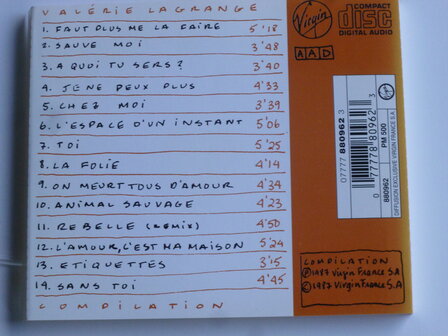 VALÉRIE LAGRANGE
1. FAUT PLUS ME LA FAIRE 5'18
2. SAUVE MOI 3'48
3. A QUOI TU SERS? 3'40
4. JE NE PEUX PLUS 4'33
5. CHEZ MOI 3'39
6. L'ESPACE D'UN INSTANT 5'06
7. TOI 5'25
8. LA FOLIE 4'14
9. ON MEURT TOUS D'AMOUR 4'34
10. ANIMAL SAUVAGE 4'23
11. REBELLE (REMIX) 4'50
12. L'AMOUR, C'EST MA MAISON 5'24
13. ETIQUETTES 3'15
14. SANS TOI 4'45
COMPILATION
Virgin
COMPACT
disc
DIGITAL AUDIO
AAD
07777 880962 3
0 77778 80962 3
880962
PM 500
DIFFUSION EXCLUSIVE VIRGIN FRANCE S.A.
COMPILATION
℗1987 Virgin France S.A
©1987 Virgin France S.A